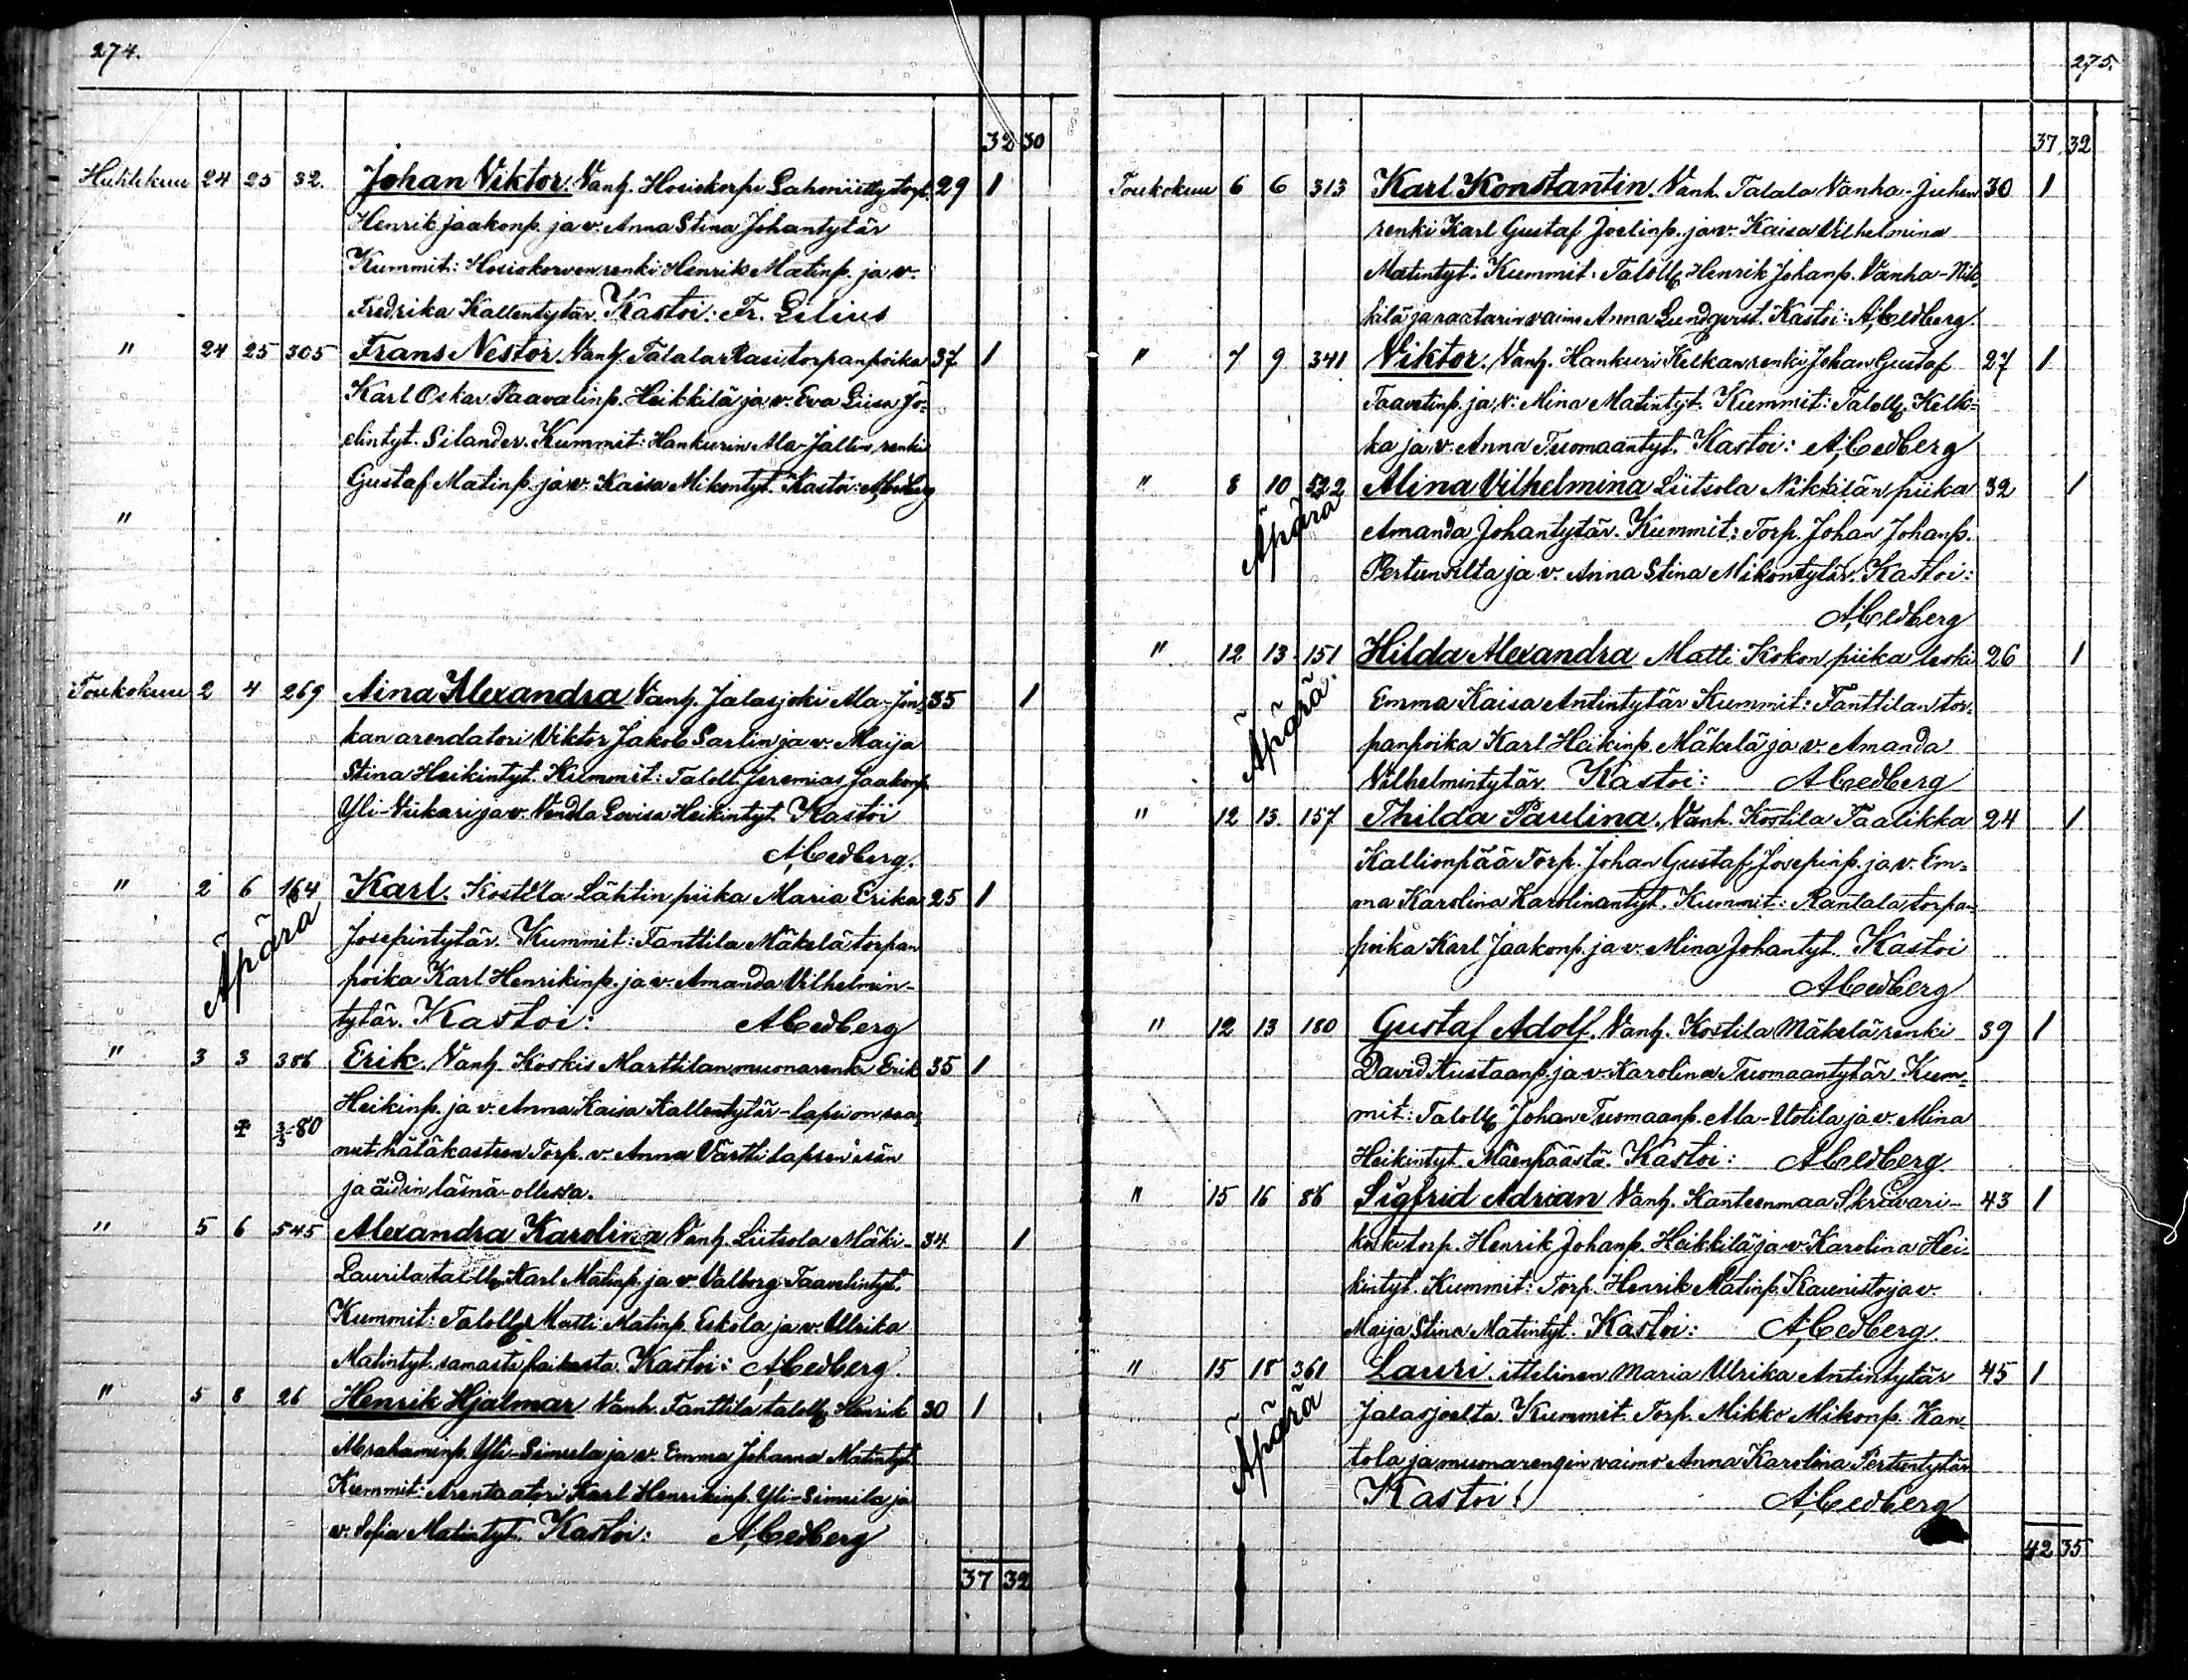 274.
32 30
Huhtikuu 24 25 32. Johan Viktor. Vanh. Hosiskorpi Lahoniitty torp. 29 1
Henrik Jaakonp. ja v. Anna Stina Johantytär
Kummit: Hosiokorven renki Henrik Matinp. ja v.
Fredrika Kallentytär. Kastoi: Fr. Lilius
" 24 25 305 Frans Nestor. Vanh. Talala Rasi torpanpoika 37 1
Karl Oskar Paavalinp. Heikkilä ja v. Eva Liisa Jo-
elintyt. Silander. Kummit: Hankurin Ala-Jallin renki
Gustaf Matinp. ja v. Kaisa Mikontyt. Kastoi: A Cedberg
"
Toukokuu 2 4 269 Aina Alexandra Vanh. Jalasjoki Ala-Jon- 35 1
kan arendatori Viktor Jakob Sarlin ja v. Maija
Stina Heikintyt. Kummit: Taloll. Jeremias Jaakonp.
Yli-Viikari ja v. Vendla Lovisa Heikintyt Kastoi
A Cedberg.
" 2 6 164 Karl. Kostila Lähtin piika Maria Erika 25 1
Äpärä
Josepintytär. Kummit: Tanttila Mäkelä torpan
poika Karl Henrikinp. ja v. Amanda Vilhelmin-
tytär. Kastoi: A Cedberg
" 3 3 386 Erik. Vanh. Koskis Marttilan muonarenki Erik 35 1
Heikinp. ja v. Anna Kaisa Kallentytär - lapsi on saa-
‡ 3/5-80 nut hätäkasteen Torp. v. Anna Värtti lapsen isän
ja äidin läsnä-ollessa.
" 5 6 545 Alexandra Karolina Vanh. Liitsola Mäki- 34 1
Laurila taloll. Karl Matinp. ja v. Valborg Taavelintyt.
Kummit: Taloll. Matti Matinp. Eskola ja v. Ulrika
Matintyt. samasti paikasta. Kastoi: A Cedberg.
" 5 8 26 Henrik Hjalmar Vanh. Tanttila taloll. Henrik 30 1
Abrahaminp. Yli-Simula ja v. Emma Johanna Matintyt.
Kummit: Arentaatori Karl Henrikinp. Yli-Simula ja
v. Sofia Matintyt. Kastoi: A Cedberg
37 32
275.
37 32
Toukokuu 6 6 313 Karl Konstantin. Vanh. Talala Vanha-Juhan 30 1
renki Karl Gustaf Joelinp. ja v. Kaisa Vilhelmina
Matintyt. Kummit: Taloll. Henrik Johanp. Vanha-Nik-
kilä ja raatarin vaimo Anna Lundqvist. Kastoi: A Cedberg.
" 7 9 341 Viktor. Vanh. Hankuri Kelkan renki Johan Gustaf 27 1
Taavetinp. ja v. Mina Matintyt. Kummit: Taloll. Kelk-
ka ja v. Anna Tuomaantyt. Kastoi: A Cedberg
" 8 10 522 Alina Vilhelmina Liitsola Nikkilän piika 32 1
Äpärä
Amanda Johantytär. Kummit: Torp. Johan Johanp.
Pertunsilta ja v. Anna Stina Mikontytär. Kastoi:
A Cedberg
" 12 13 151 Hilda Alexandra Matti Kokon piika leski 26 1
Äpärä.
Emma Kaisa Antintytär Kummit: Tanttilan tor-
panpoika Karl Heikinp. Mäkelä ja v. Amanda
Vilhelmintytär. Kastoi: A Cedberg
" 12 13. 157 Thilda Paulina. Vanh. Kostila Taalikka 24 1
Kallionpää Torp. Johan Gustaf Josepinp. ja v. Em-
ma Karolina Karolinantyt. Kummit: Rantala torpan-
poika Karl Jaakonp. ja v. Mina Johantyt. Kastoi
A Cedberg
" 12 13 180 Gustaf Adolf. Vanh. Kostila Mäkelä renki 39 1
David Kustaanp. ja v. Karolina Tuomaantytär. Kum-
mit: Taloll. Johan Tuomaanp. Ala-Utotila ja v. Mina
Heikintyt. Mäenpäästä. Kastoi: A Cedberg
" 15 16 86 Sigfrid Adrian Vanh. Kanteenmaa Skrävari- 43 1
koski torp. Henrik Johanp. Heikkilä ja v. Karolina Hei-
kintyt. Kummit: Torp. Henrik Matinp. Kaunisto ja v.
Maija Stina Matintyt. Kastoi: A Cedberg.
" 15 18 361 Lauri. ittelinen Maria Ulrika Antintytär 45 1
Äpärä
Jalasjoelta. Kummit. Torp. Mikko Mikonp. Kan-
tola ja muonarengin vaimo Anna Karolina Pertuntytär
Kastoi: A Cedberg
42 35